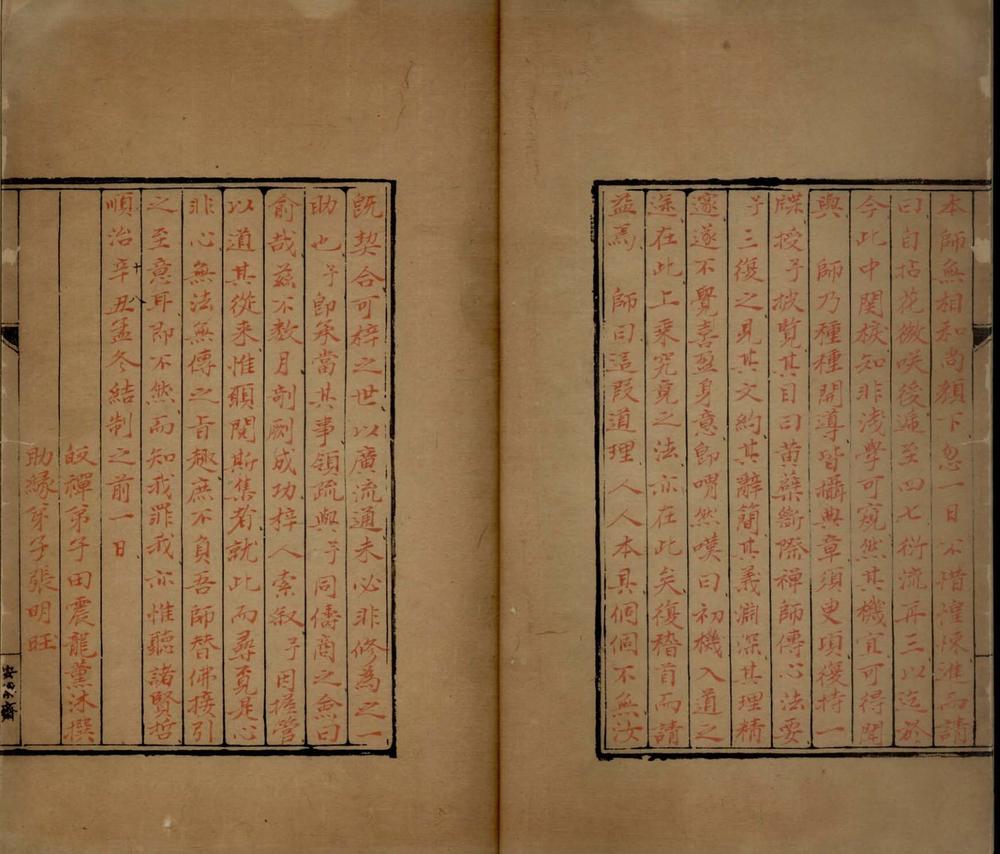 本師無相和尚顏下忽一日不惜惶悚進而請
曰自拈花微咲後遞至四七衍流再三以迄於
今此中関棙知非浅學可窺然其機宜可得聞
與　師乃種種開導皆攝典章須臾項復持一
牒授予披覧其目曰黄蘗斷際禪師傳心法要
予三復之見其文約其辭簡其義淵深其理精
邃遂不覺喜盈身意卽喟然嘆曰初機入道之
途在此上乗究竟之法亦在此矣復稽首而請
益焉　師曰這叚道理人人本具個個不無汝
旣契合可梓之世以廣流通未必非修為之一
助也予卽承當其事領疏與予同儔商之僉曰
俞哉茲不数月剞劂成功梓人索叙予因搓管
以道其從来惟願閱斯集者就此而尋覔是心
非心無法無傳之旨趣庶不負吾師替佛接引
之至意耳即不然而知我罪我亦惟聽諸賢哲
順治辛丑孟冬結制之前一日
十八
皈禪弟子田震龍薰沐撰
助緣弟子張明旺